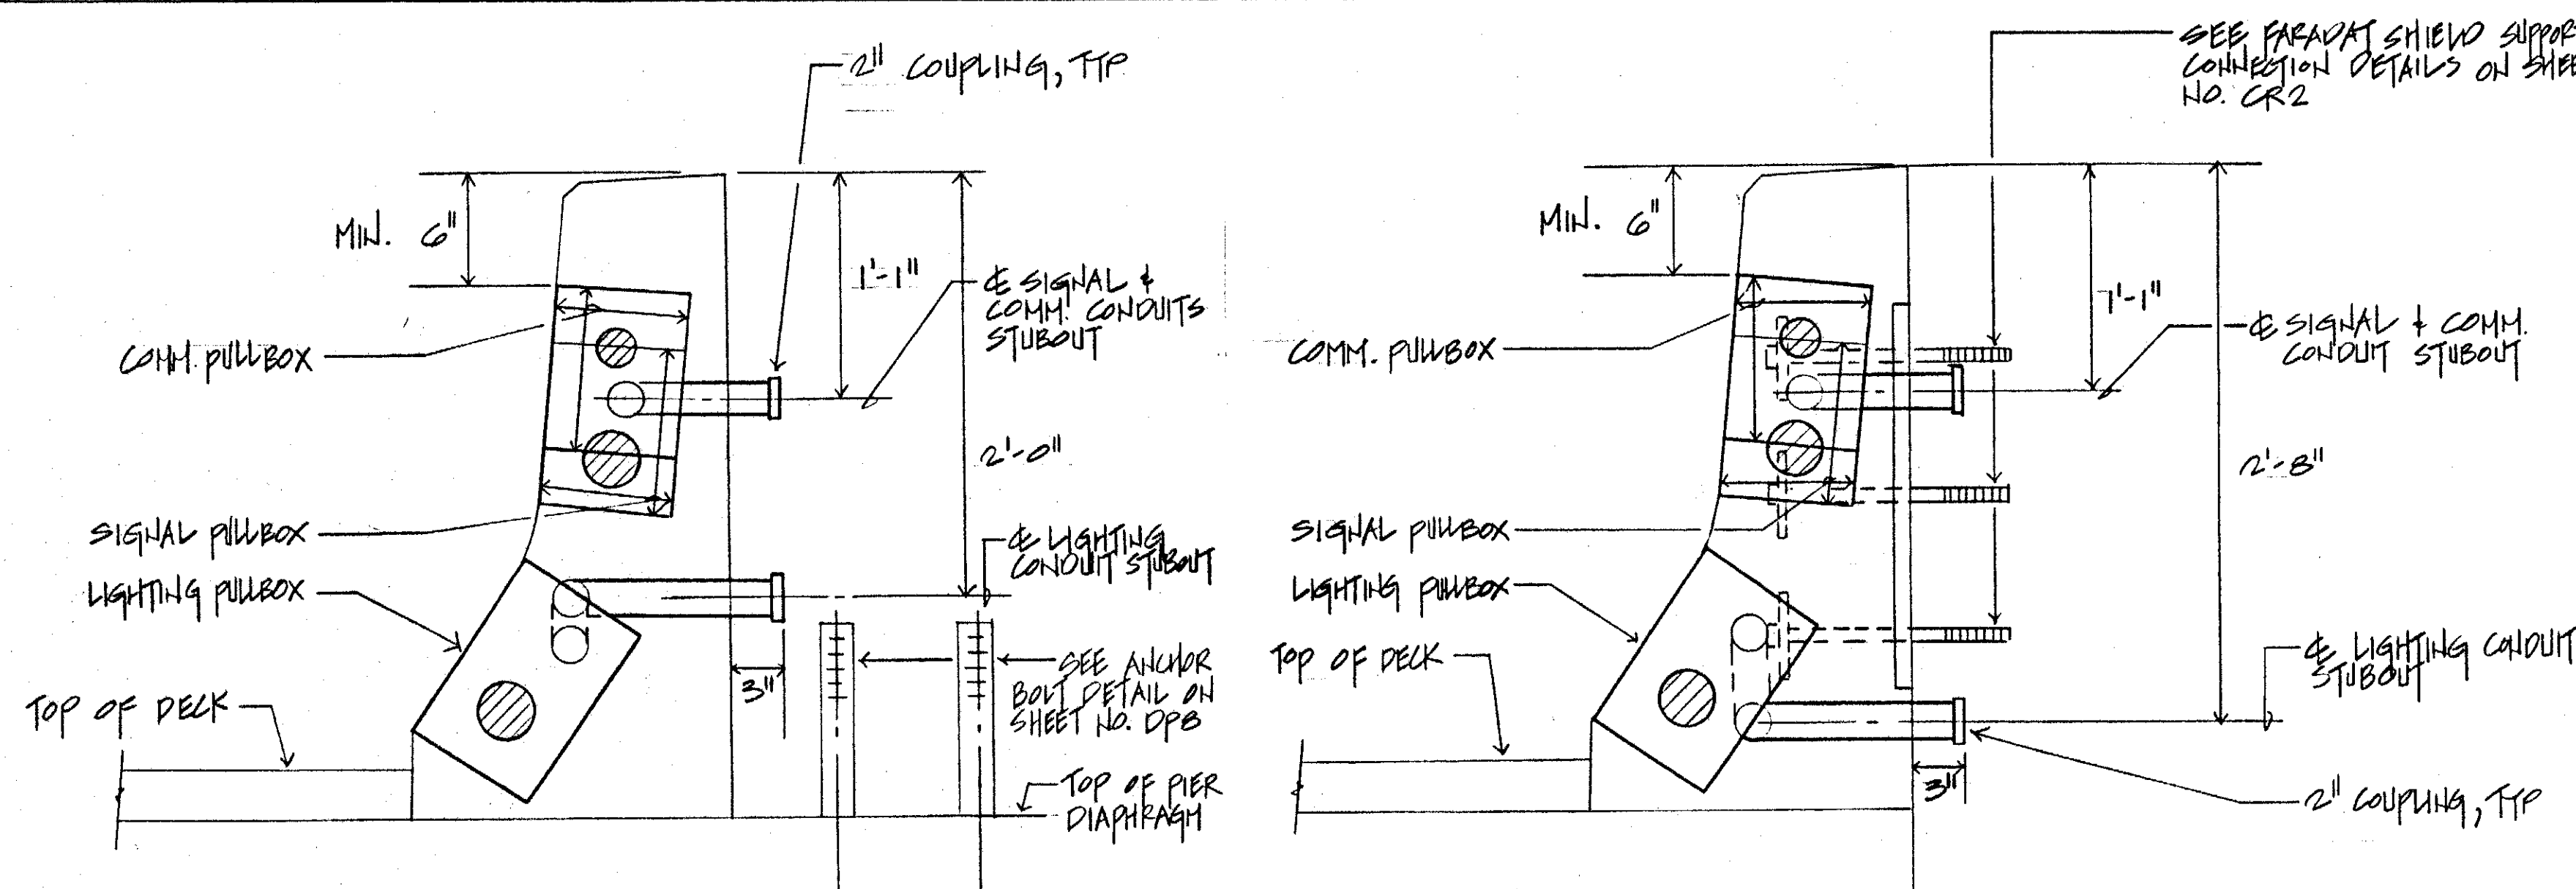 2" COUPLING, TYP
MIN. 6"
1'-1"
℄ SIGNAL &
COMM. CONDUITS
STUBOUT
COMM. PULLBOX
2'-0"
SIGNAL PULLBOX
℄ LIGHTING
CONDUIT STUBOUT
LIGHTING PULLBOX
3"
SEE ANCHOR
BOLT DETAIL ON
SHEET NO. DP8
TOP OF DECK
TOP OF PIER
DIAPHRAGM
SEE FARADAY SHIELD SUPPORT
CONNECTION DETAILS ON SHEE
NO. CR2
MIN. 6"
1'-1"
℄ SIGNAL & COMM.
CONDUIT STUBOUT
COMM. PULLBOX
2'-8"
SIGNAL PULLBOX
LIGHTING PULLBOX
TOP OF DECK
℄ LIGHTING CONDUIT
STUBOUT
3"
2" COUPLING, TYP